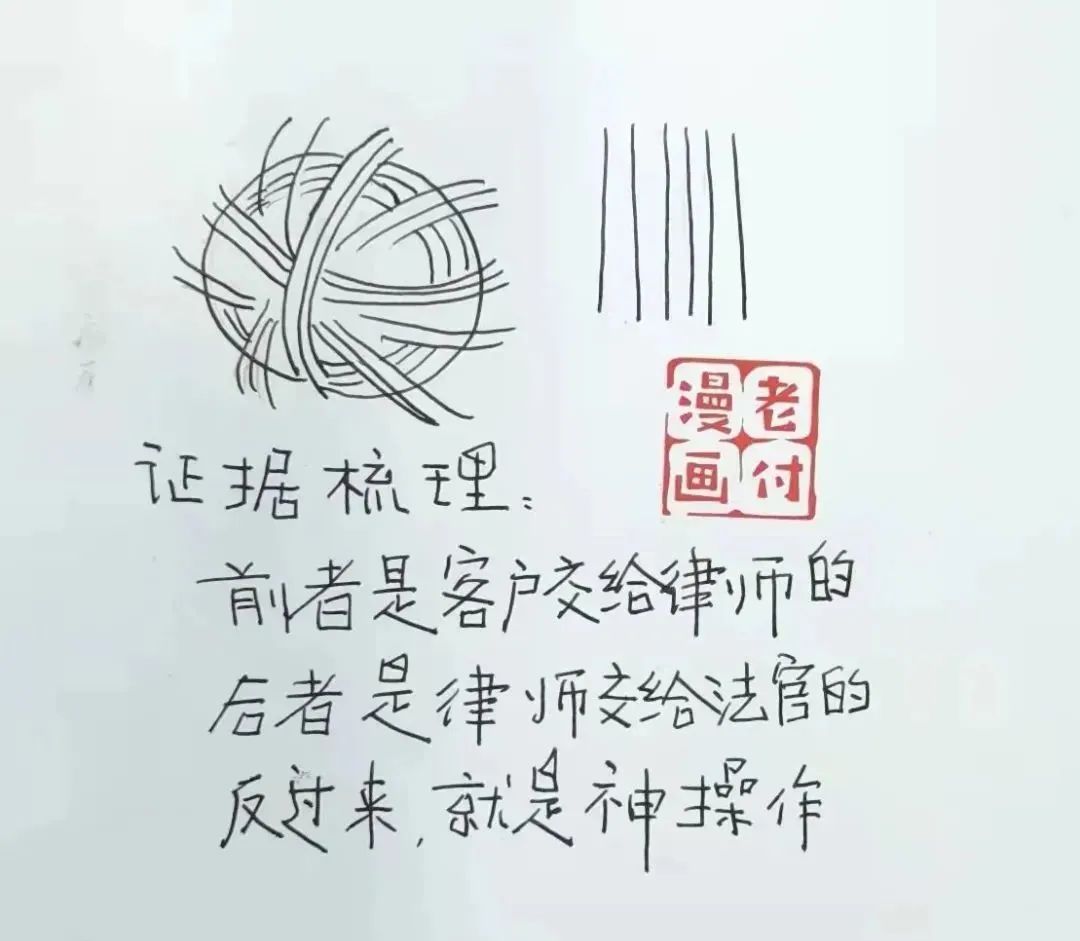 老付
漫画
证据梳理:
前者是客户交给律师的
后者是律师交给法官的
反过来,就是神操作